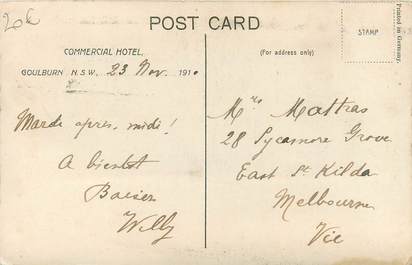 POST CARD
COMMERCIAL HOTEL,
GOULBURN N.S.W., 23 Nov. 1910
(For address only)
STAMP
Printed in Germany.
Mardi après-midi!
A bientot
Baiser
Willy
Mrs Mattras
28 Sycamore Grove
East St Kilda
Melbourne
Vic